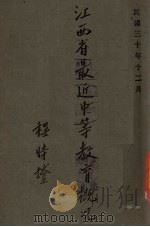 民國三十年十二月
江西省最近中等教育概況
程時煃